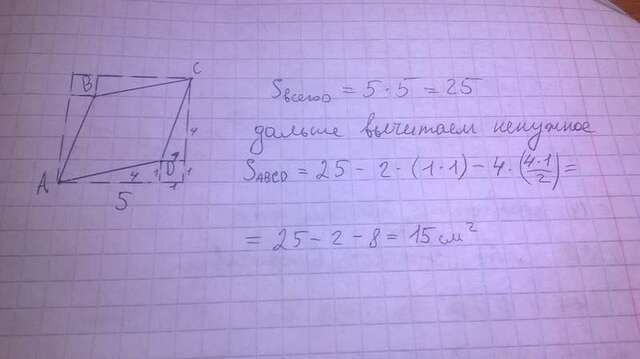 B
C
A
D
4
4
1
1
1
5
Sвсего = 5·5 = 25
дальше вычитаем ненужное
SABCD = 25 - 2·(1·1) - 4·(4·1/2) =
= 25 - 2 - 8 = 15 см²